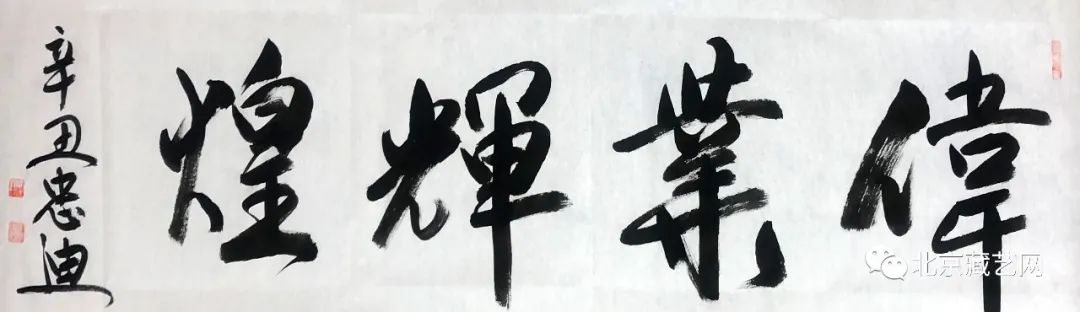 偉業輝煌
辛丑忠迪
北京藏艺网